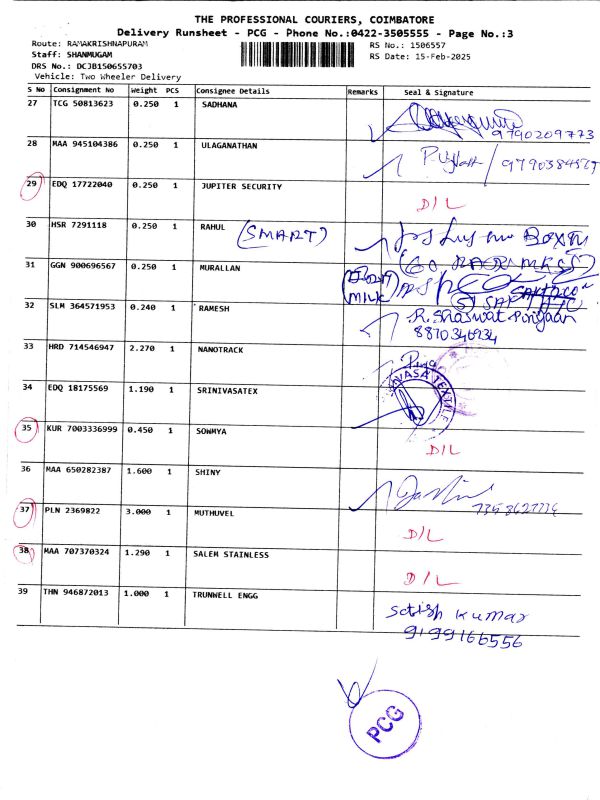 THE PROFESSIONAL COURIERS, COIMBATORE
Delivery Runsheet - PCG - Phone No.:0422-3505555 - Page No.:3
Route: RAMAKRISHNAPURAM RS No.: 1506557
Staff: SHANMUGAM RS Date: 15-Feb-2025
DRS No.: DCJB150655703
Vehicle: Two Wheeler Delivery
S No Consignment No Weight PCS Consignee Details Remarks Seal & Signature
27 TCG 50813623 0.250 1 SADHANA
9790209773
28 MAA 945104386 0.250 1 ULAGANATHAN
29 EDQ 17722040 0.250 1 JUPITER SECURITY
D/L
30 HSR 7291118 0.250 1 RAHUL (SMART)
31 GGN 900696567 0.250 1 MURALLAN
(MILK)
32 SLM 364571953 0.240 1 RAMESH
33 HRD 714546947 2.270 1 NANOTRACK
34 EDQ 18175569 1.190 1 SRINIVASATEX
35 KUR 7003336999 0.450 1 SOWMYA
D/L
36 MAA 650282387 1.600 1 SHINY
37 PLN 2369822 3.000 1 MUTHUVEL
D/L
38 MAA 707370324 1.290 1 SALEM STAINLESS
D/L
39 THN 946872013 1.000 1 TRUNWELL ENGG
Sotish Kumar
9199166556
PCG